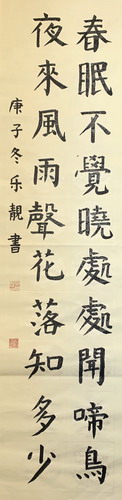 春眠不覺曉處處聞啼鳥
夜來風雨聲花落知多少
庚子冬乐靚書